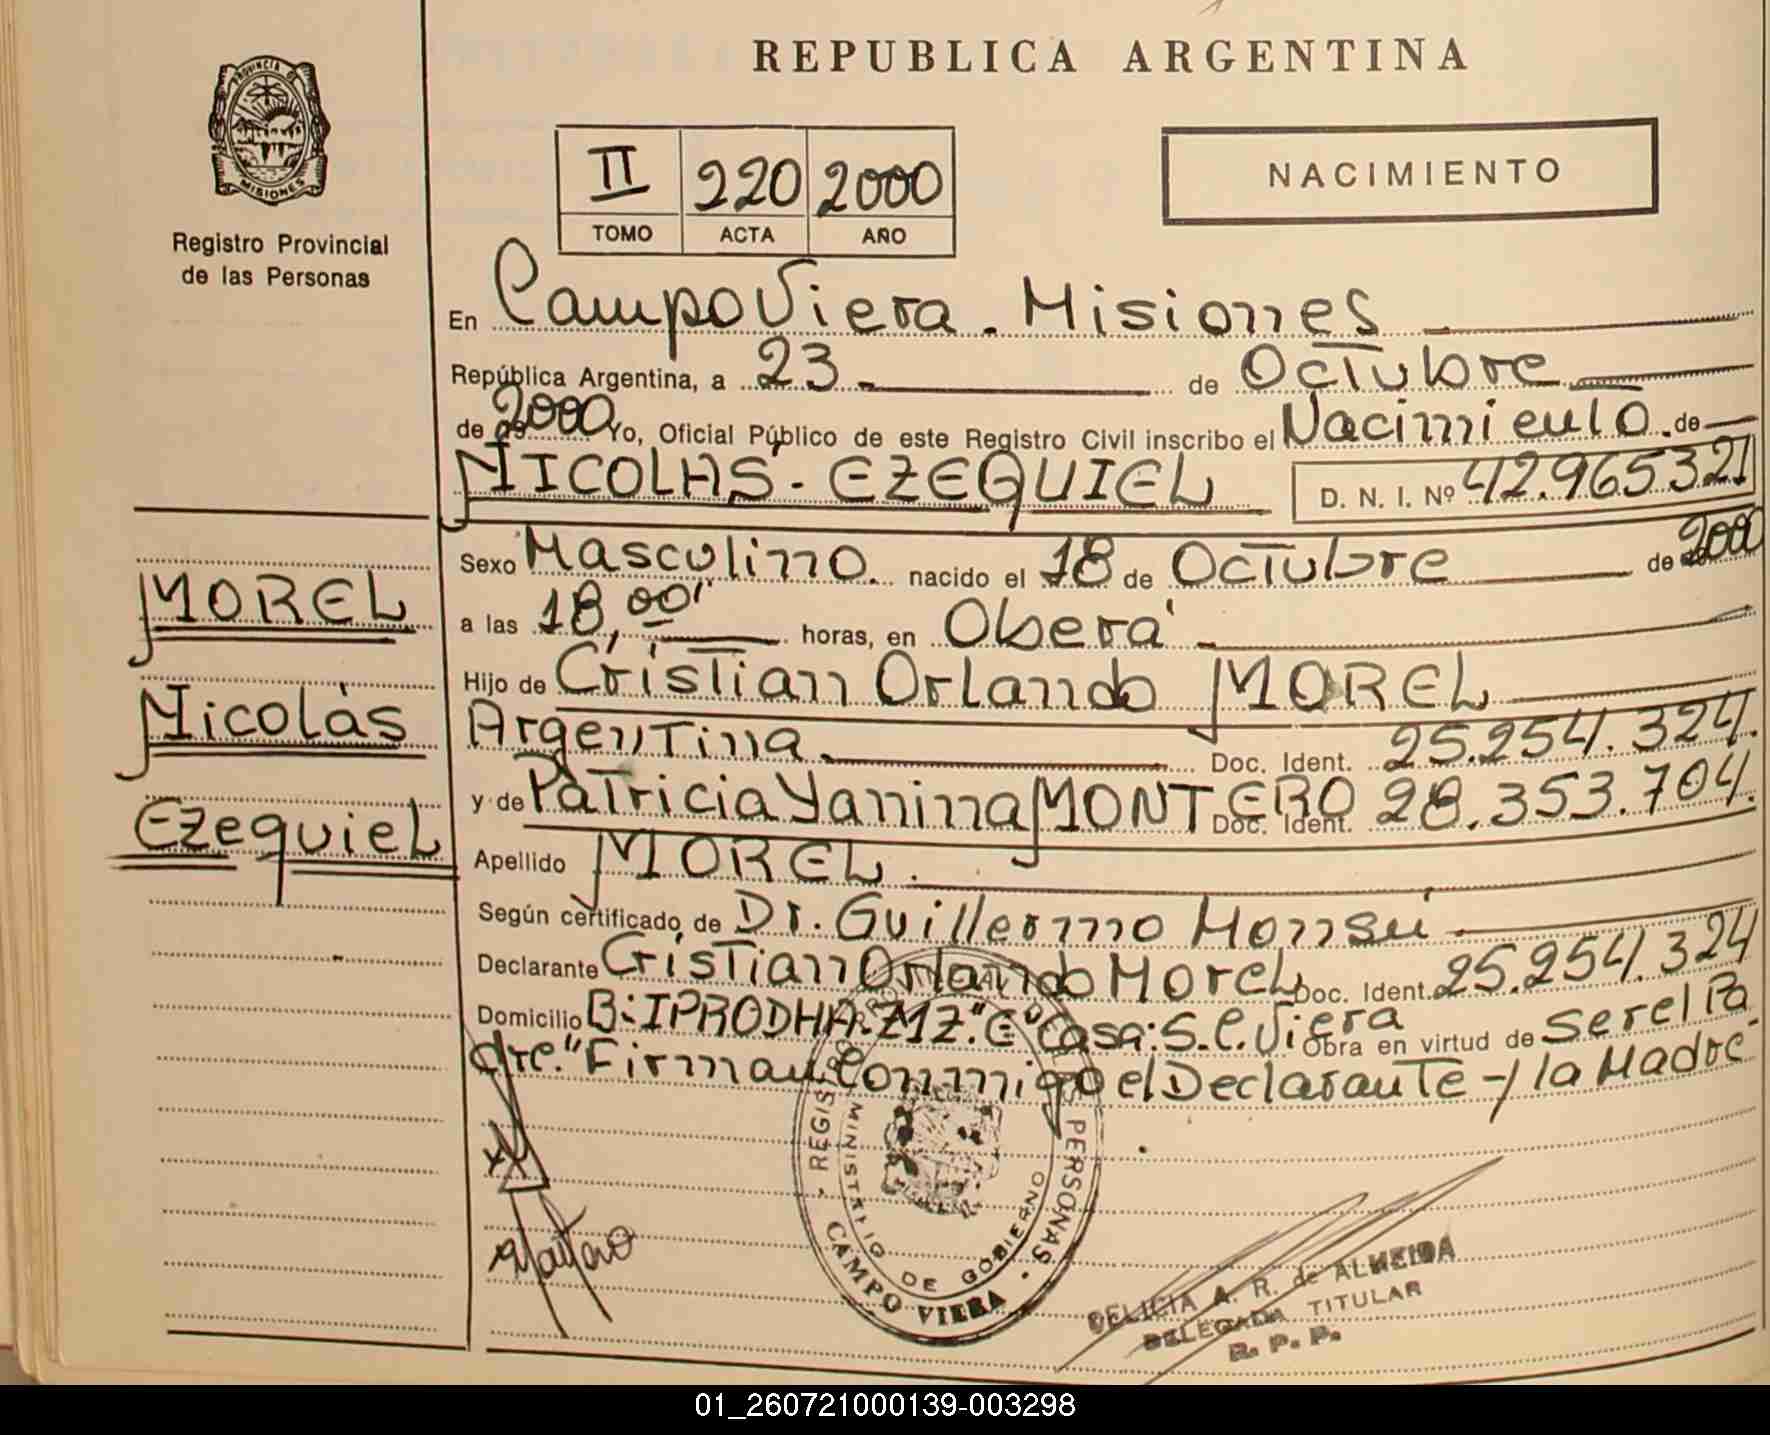 REPUBLICA ARGENTINA
PROVINCIA DE
MISIONES
Registro Provincial
de las Personas
II 220 2000
TOMO ACTA AÑO
NACIMIENTO
En Campo Viera. Misiones
República Argentina, a 23 de Octubre
de 2000 Yo, Oficial Público de este Registro Civil inscribo el Nacimiento de
NICOLAS. EZEQUIEL D. N. I. Nº 42.965321
Sexo Masculino nacido el 18 de Octubre de 2000
a las 18,00 horas, en Oberá
Hijo de Cristian Orlando MOREL
Argentina Doc. Ident. 25.254.324.
y de Patricia Yanina MONTERO Doc. Ident. 28.353.704.
Apellido MOREL.
Según certificado de Dr. Guillermo
Declarante Cristian Orlando Morel Doc. Ident. 25.254.324
Domicilio B: IPRODHA. Z1Z."E" Casa: 5. C. Viera Obra en virtud de ser el Pa
dre." Firman Conmigo el Declarante -/ la Madre
MOREL
Nicolás
Ezequiel
Montero
REGISTRO PERSONAS
MINISTERIO DE GOBIERNO
CAMPO VIERA
DELICIA A. R. de ALMEIDA
DELEGADA TITULAR
R. P. P.
01_260721000139-003298